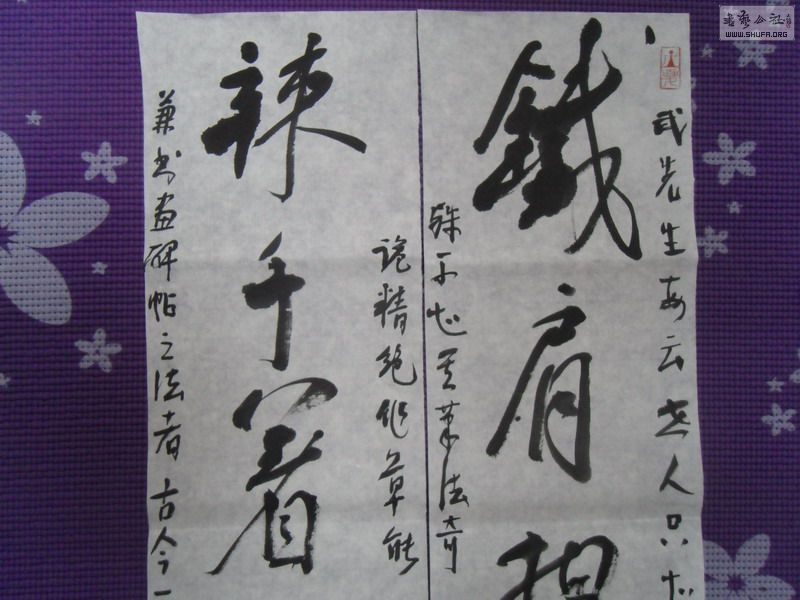 武先生每云世人只
鐵肩担
殊不知其筆法奇
詭精絕作草能
辣手著
兼书畫碑帖之法者古今一
書藝公社
WWW.SHUFA.ORG